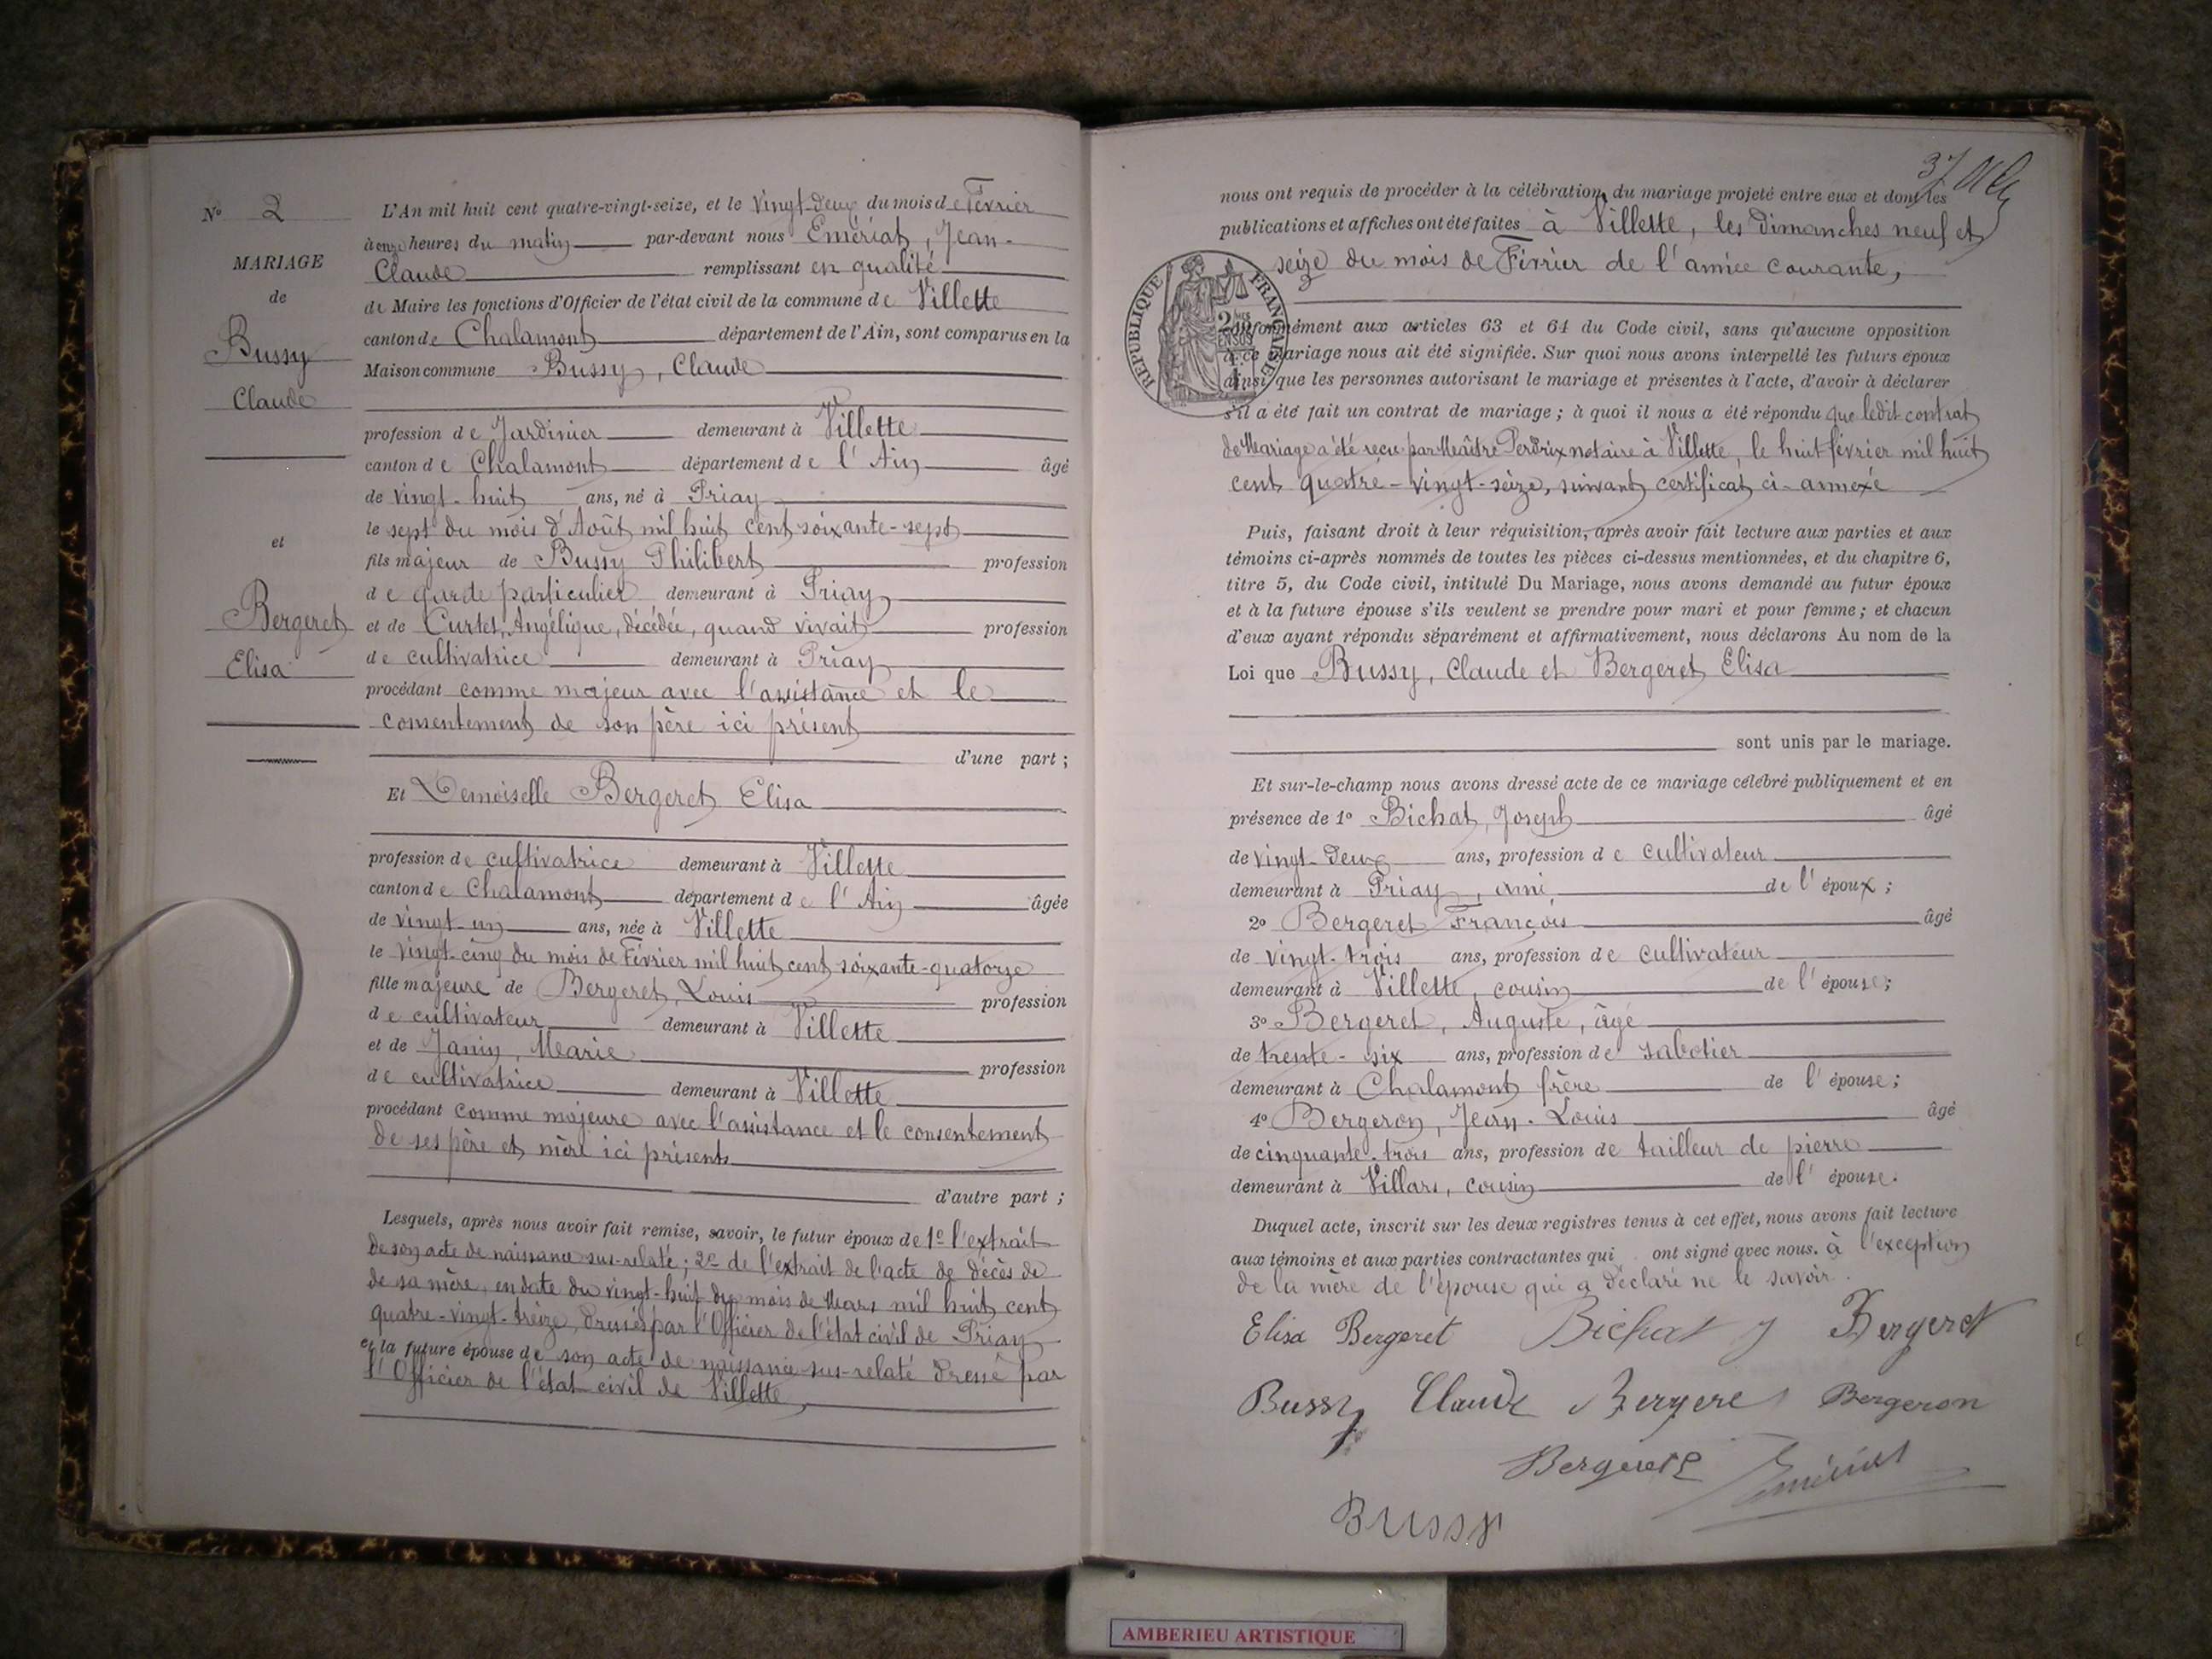 N° 2
MARIAGE
de
Bussy
Claude
et
Bergeret
Elisa
L'An mil huit cent quatre-vingt-seize, et le vingt-deux du mois de Février
à onze heures du matin par-devant nous Emériat, Jean-
Claude remplissant en qualité
de Maire les fonctions d'Officier de l'état civil de la commune de Villette
canton de Chalamont département de l'Ain, sont comparus en la
Maison commune Bussy, Claude
profession de Jardinier demeurant à Villette
canton de Chalamont département de l'Ain âgé
de vingt-huit ans, né à Priay
le sept du mois d'Août mil huit cent soixante-sept
fils majeur de Bussy Philibert profession
de garde particulier demeurant à Priay
et de Curtet, Angélique, décédée, quand vivait profession
de cultivatrice demeurant à Priay
procédant comme majeur avec l'assistance et le
consentement de son père ici présent
d'une part ;
Et Demoiselle Bergeret Elisa
profession de cultivatrice demeurant à Villette
canton de Chalamont département de l'Ain âgée
de vingt-un ans, née à Villette
le vingt-cinq du mois de Février mil huit cent soixante-quatorze
fille majeure de Bergeret, Louis profession
de cultivateur demeurant à Villette
et de Janin, Marie profession
de cultivatrice demeurant à Villette
procédant comme majeure avec l'assistance et le consentement
de ses père et mère ici présents
d'autre part ;
Lesquels, après nous avoir fait remise, savoir, le futur époux de 1° l'extrait
de son acte de naissance sus-relaté ; 2° de l'extrait de l'acte de décès de
de sa mère, en date du vingt-huit du mois de Mars mil huit cent
quatre-vingt-treize, dressés par l'Officier de l'état civil de Priay
et la future épouse de son acte de naissance sus-relaté dressé par
l'Officier de l'état civil de Villette,
37
nous ont requis de procéder à la célébration du mariage projeté entre eux et dont les
publications et affiches ont été faites à Villette, les dimanches neuf et
seize du mois de Février de l'année courante,
RÉPUBLIQUE FRANÇAISE
conformément aux articles 63 et 64 du Code civil, sans qu'aucune opposition
à ce mariage nous ait été signifiée. Sur quoi nous avons interpellé les futurs époux
ainsi que les personnes autorisant le mariage et présentes à l'acte, d'avoir à déclarer
s'il a été fait un contrat de mariage ; à quoi il nous a été répondu que ledit contrat
de Mariage a été reçu par Maître Perdrix notaire à Villette, le huit février mil huit
cent quatre-vingt-seize, suivant certificat ci-annexé
Puis, faisant droit à leur réquisition, après avoir fait lecture aux parties et aux
témoins ci-après nommés de toutes les pièces ci-dessus mentionnées, et du chapitre 6,
titre 5, du Code civil, intitulé Du Mariage, nous avons demandé au futur époux
et à la future épouse s'ils veulent se prendre pour mari et pour femme ; et chacun
d'eux ayant répondu séparément et affirmativement, nous déclarons Au nom de la
Loi que Bussy, Claude et Bergeret Elisa
sont unis par le mariage.
Et sur-le-champ nous avons dressé acte de ce mariage célébré publiquement et en
présence de 1° Bichat, Joseph âgé
de vingt-deux ans, profession de cultivateur
demeurant à Priay, ami de l'époux ;
2° Bergeret François âgé
de vingt-trois ans, profession de cultivateur
demeurant à Villette, cousin de l'épouse ;
3° Bergeret, Auguste, âgé
de trente-six ans, profession de sabotier
demeurant à Chalamont frère de l'épouse ;
4° Bergeron, Jean-Louis âgé
de cinquante-trois ans, profession de tailleur de pierre
demeurant à Villars, cousin de l'épouse.
Duquel acte, inscrit sur les deux registres tenus à cet effet, nous avons fait lecture
aux témoins et aux parties contractantes qui ont signé avec nous. à l'exception
de la mère de l'épouse qui a déclaré ne le savoir.
Elisa Bergeret Bichat J Bergeret
Bussy Claude Bergeret Bergeron
Bergeret Emériat
Bussy
AMBERIEU ARTISTIQUE